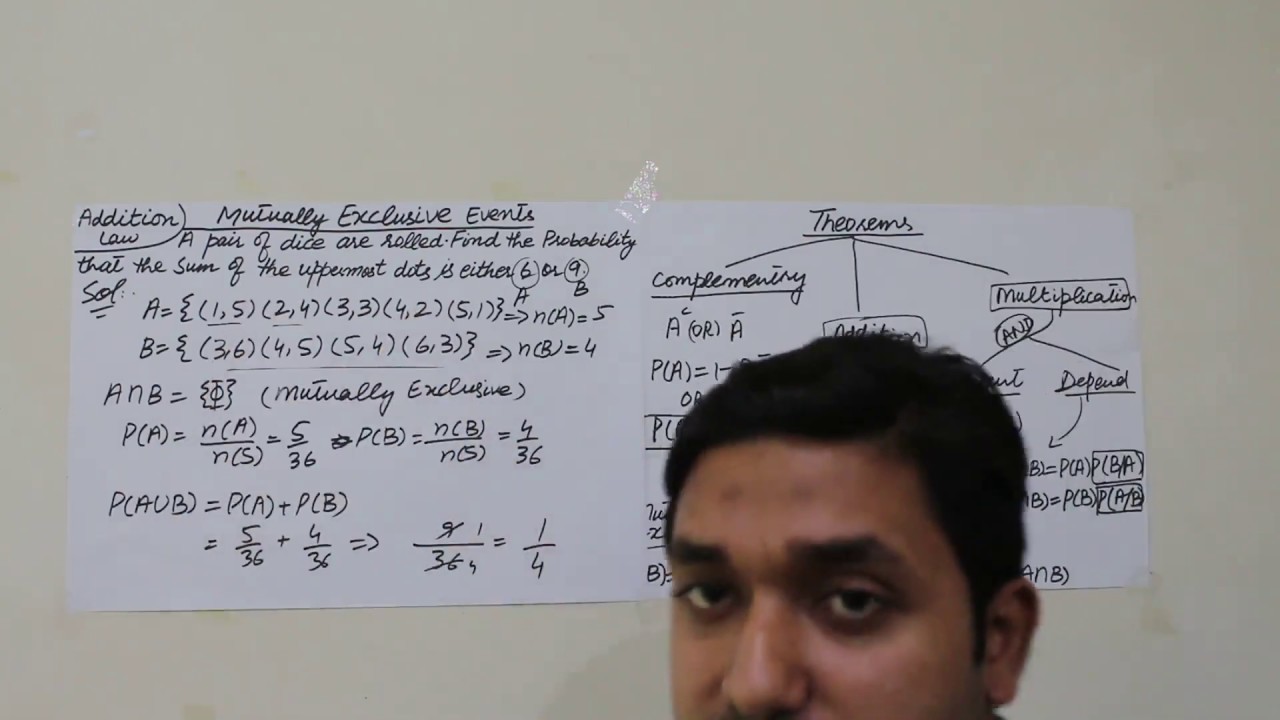 Addition Law) Mutually Exclusive Events
A pair of dice are rolled. Find the Probability
that the sum of the uppermost dots is either 6 or 9.
A B
Sol:
A = {(1,5)(2,4)(3,3)(4,2)(5,1)} => n(A)=5
B = {(3,6)(4,5)(5,4)(6,3)} => n(B)=4
A∩B = {Φ} (Mutually Exclusive)
P(A) = n(A)/n(S) = 5/36 P(B) = n(B)/n(S) = 4/36
P(A∪B) = P(A) + P(B)
= 5/36 + 4/36 => 9 1/36 4 = 1/4
Theorems
Complementry
Multiplication
Aᶜ (OR) Ā
Addition
AND
P(A)=1-
Depend
OR
P(
B)=P(A)P(B/A)
B)=P(B)P(A/B)
B)=
A∩B)